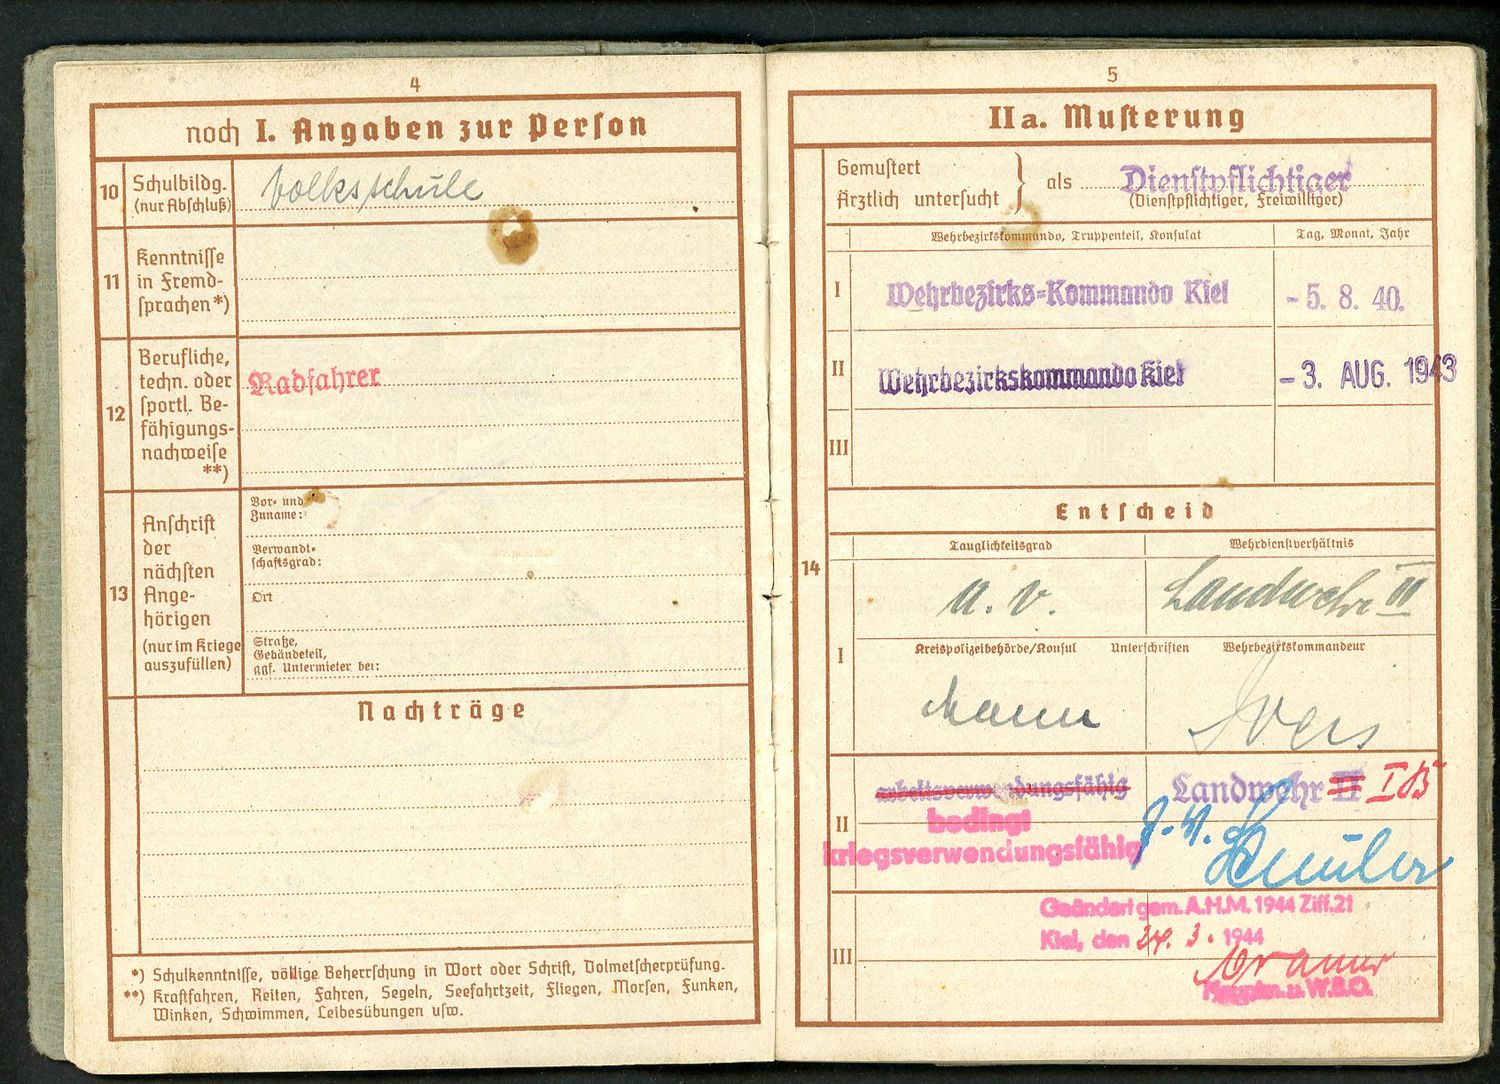 4
noch I. Angaben zur Person
10
Schulbildg.
(nur Abschluß)
Volksschule
11
Kenntnisse
in Fremd-
sprachen*)
12
Berufliche,
techn. oder
sportl. Be-
fähigungs-
nachweise
**)
Radfahrer
13
Anschrift
der
nächsten
Ange-
hörigen
(nur im Kriege
auszufüllen)
Vor- und
Zuname:
Verwandt-
schaftsgrad:
Ort
Straße,
Gebäudeteil,
ggf. Untermieter bei:
Nachträge
*) Schulkenntnisse, völlige Beherrschung in Wort oder Schrift, Dolmetscherprüfung.
**) Kraftfahren, Reiten, Fahren, Segeln, Seefahrtzeit, Fliegen, Morsen, Funken,
Winken, Schwimmen, Leibesübungen usw.
5
IIa. Musterung
Gemustert
Ärztlich untersucht
als Dienstpflichtiger
(Dienstpflichtiger, Freiwilliger)
Wehrbezirkskommando, Truppenteil, Konsulat
Tag, Monat, Jahr
I
Wehrbezirks-Kommando Kiel
- 5. 8. 40.
II
Wehrbezirkskommando Kiel
- 3. AUG. 1943
III
Entscheid
14
Tauglichkeitsgrad
Wehrdienstverhältnis
a. v.
Landwehr III
I
Kreispolizeibehörde/Konsul
Unterschriften
Wehrbezirkskommandeur
II
arbeitsverwendungsfähig
Landwehr II I B
bedingt
kriegsverwendungsfähig
III
Geändert gem. A.H.M. 1944 Ziff. 21
Kiel, den 24. 3. 1944
Hauptm. u. W.B.O.